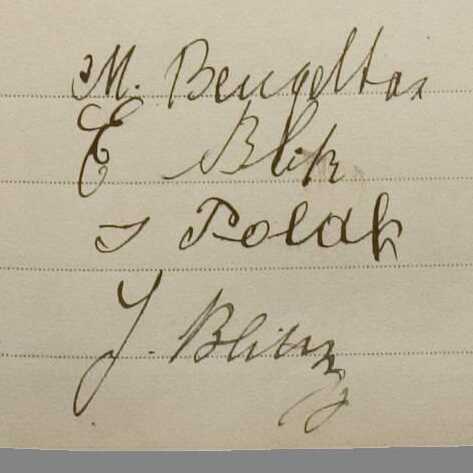 M. Beugeltas
E Blik
S Polak
J. Blitz